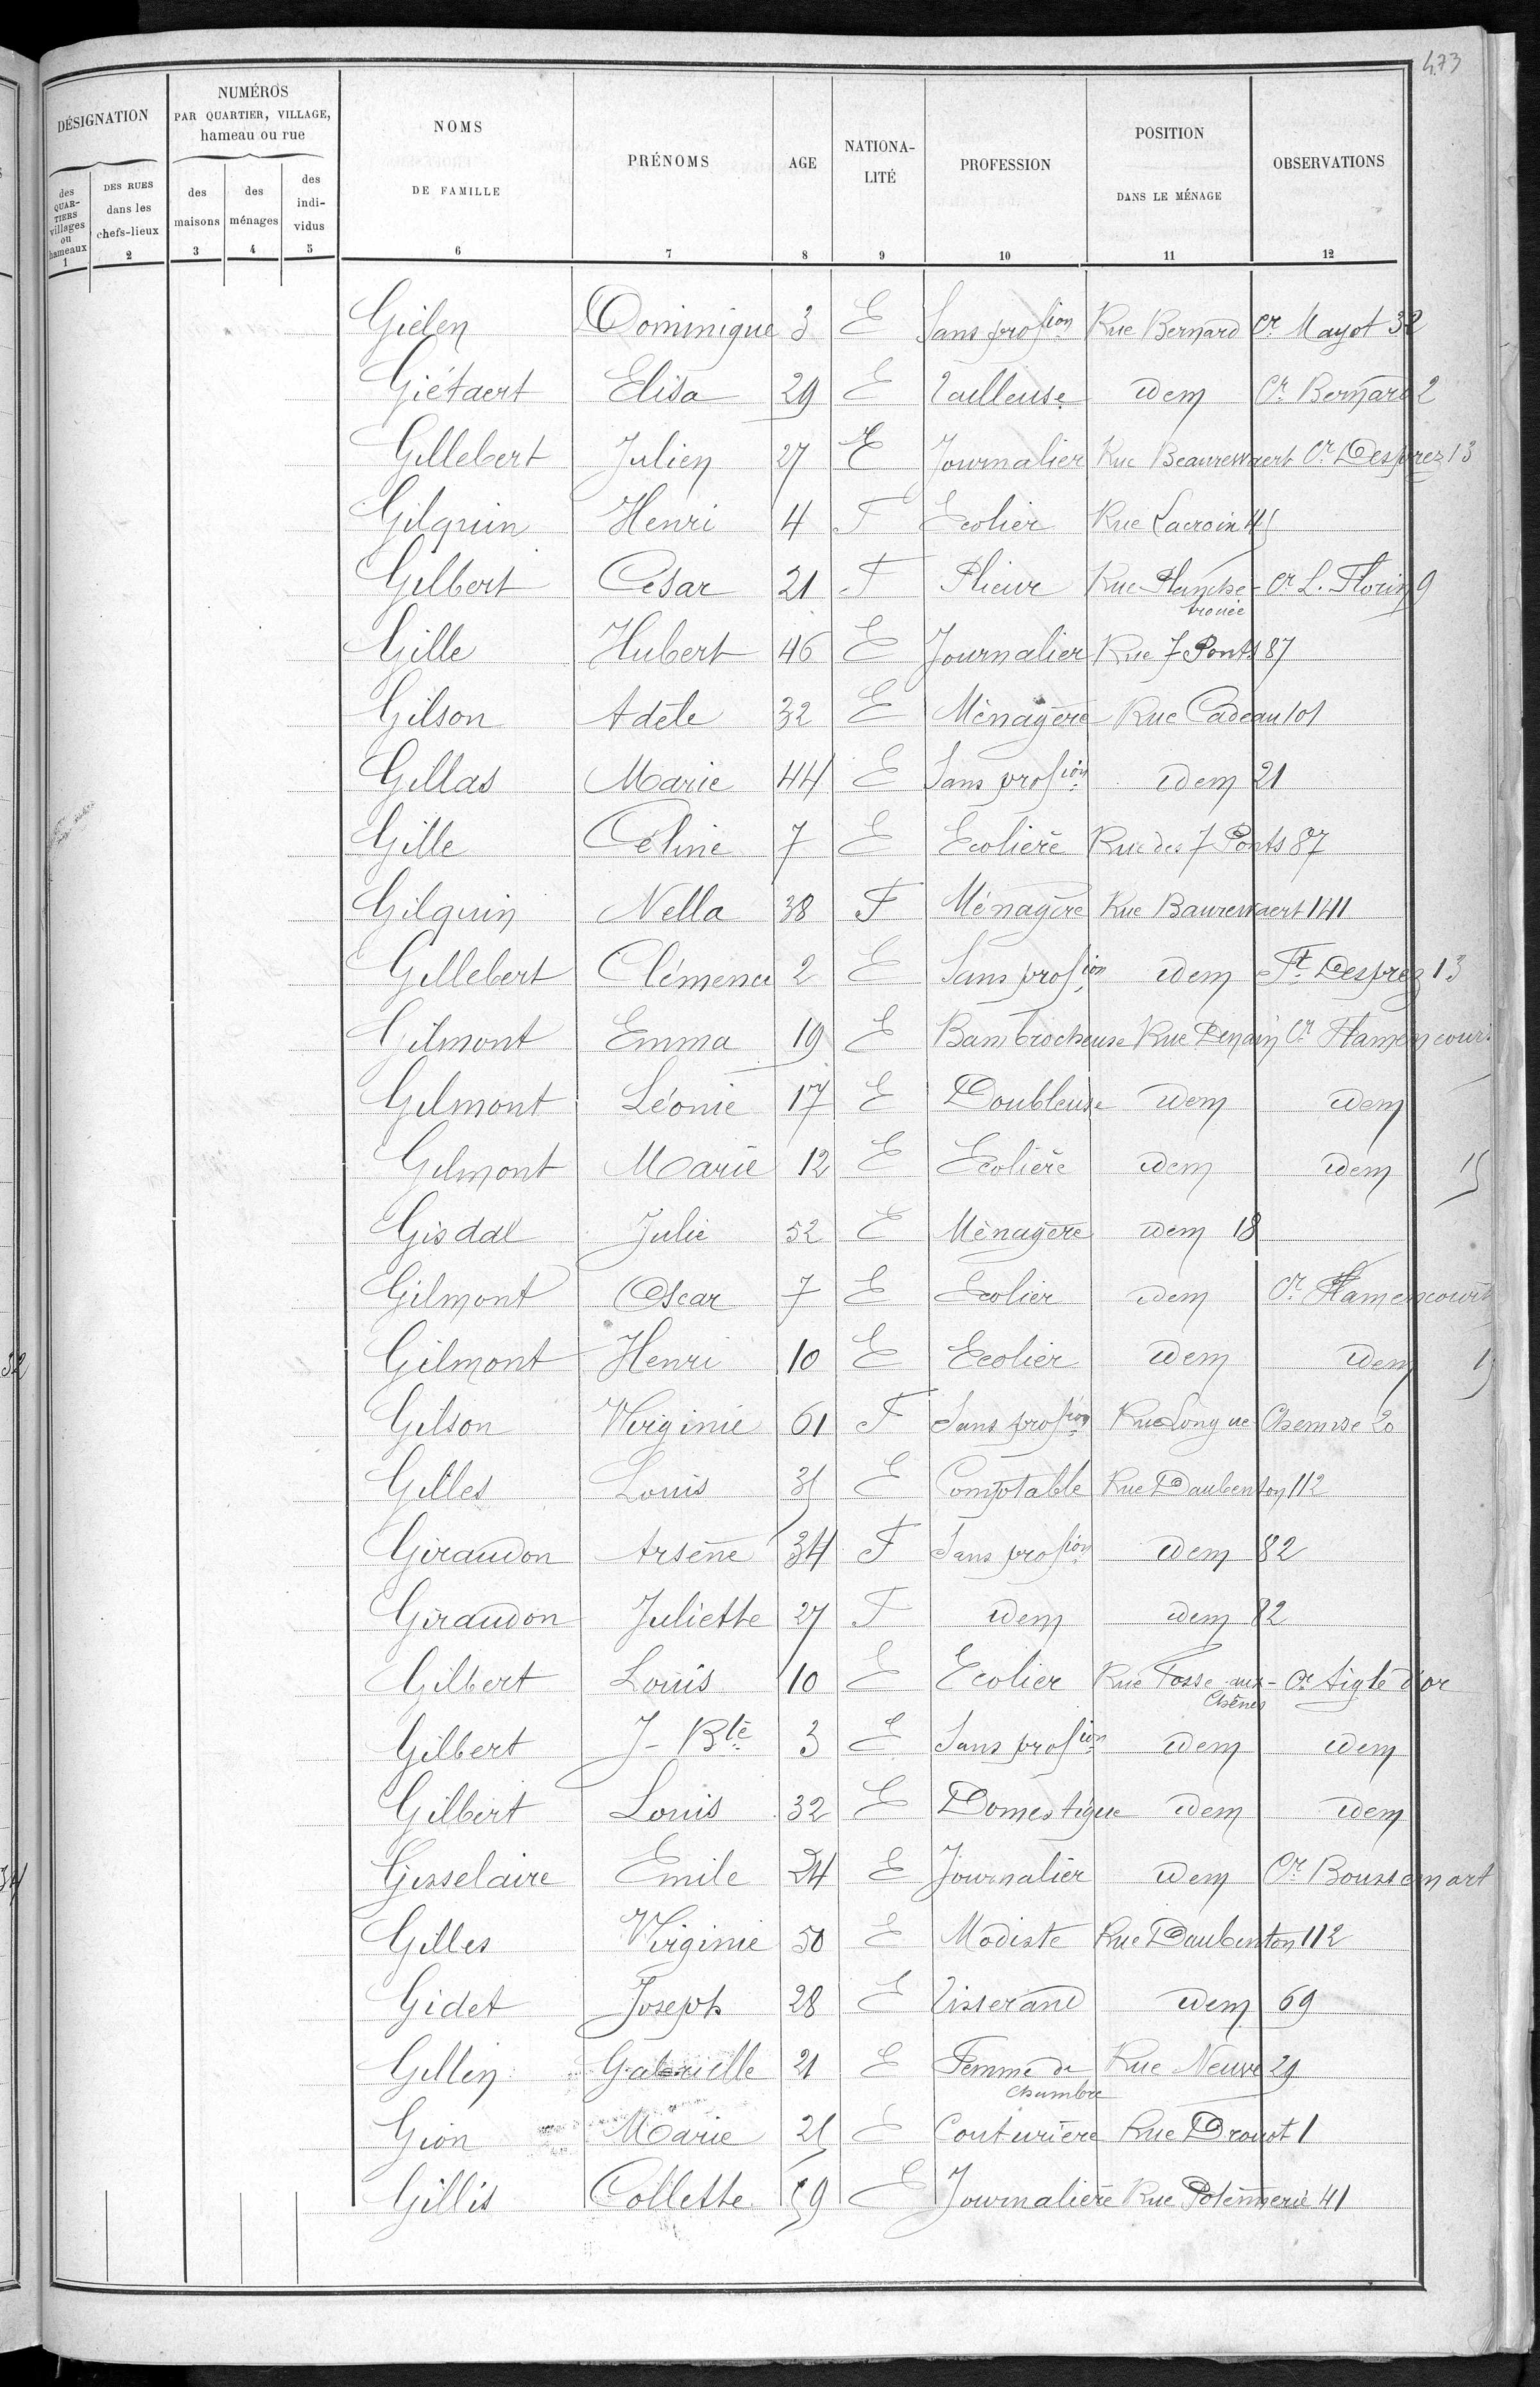 473
DÉSIGNATION
NUMÉROS
PAR QUARTIER, VILLAGE,
hameau ou rue
NOMS
DE FAMILLE
PRÉNOMS
AGE
NATIONA-
LITÉ
PROFESSION
POSITION
DANS LE MÉNAGE
OBSERVATIONS
des QUAR- TIERS villages ou hameaux
DES RUES dans les chefs-lieux
des maisons
des ménages
des indi- vidus
1 2 3 4 5 6 7 8 9 10 11 12
Gielen Dominique 3 E Sans profion Rue Bernard Cr Mayot 32
Giétaert Elisa 29 E Tailleuse idem Cr Bernard 2
Gillebert Julien 27 E Journalier Rue Beaurewaert Cr Desprez 13
Gilquin Henri 4 F Ecolier Rue Lacroix 45
Gilbert César 21 F Plieur Rue Planche- trouée Cr L. Florin 9
Gille Hubert 46 E Journalier Rue 7 Ponts 87
Gilson Adèle 32 E Ménagère Rue Cadeau 101
Gillas Marie 44 E Sans profion idem 21
Gille Céline 7 E Ecolière Rue des 7 Ponts 87
Gilquin Nella 38 F Ménagère Rue Baurewaert 141
Gillebert Clémence 2 E Sans profion idem Ft Desprez 13
Gilmont Emma 19 E Bambrocheuse Rue Denain Cr Flamencourt
Gilmont Léonie 17 E Doubleuse idem idem
Gilmont Marie 12 E Ecolière idem idem 15
Gisdal Julie 52 E Ménagère idem 18
Gilmont Oscar 7 E Ecolier idem Cr Flamencourt
Gilmont Henri 10 E Ecolier idem idem 15
Gilson Virginie 61 F Sans profion Rue Longue Chemise 20
Gilles Louis 35 E Comptable Rue Daubenton 112
Giraudon Arsène 34 F Sans profion idem 82
Giraudon Juliette 27 F idem idem 82
Gilbert Louis 10 E Ecolier Rue Fosse-aux- Chênes Cr Aigle d'or
Gilbert J-Bte 3 E Sans profion idem idem
Gilbert Louis 32 E Domestique idem idem
Gisselaire Emile 24 E Journalier idem Cr Boussemart
Gilles Virginie 50 E Modiste Rue Daubenton 112
Gidet Joseph 28 E Tisserand idem 69
Gillin Gabrielle 21 E Femme de chambre Rue Neuve 29
Gion Marie 25 E Couturière Rue Drouot 1
Gillis Collette 59 E Journalière Rue Potennerie 41